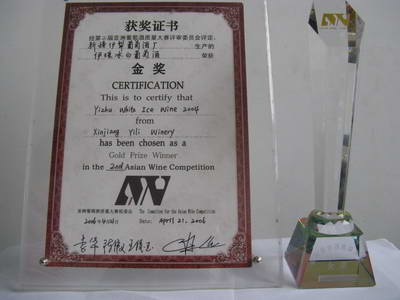 获奖证书
经第二届亚洲葡萄酒质量大赛评审委员会评定,
新疆伊犁葡萄酒厂 生产的
伊珠冰白葡萄酒 荣获
金奖
CERTIFICATION
This is to certify that
Yizhu White Ice Wine 2004
from
Xinjiang Yili Winery
has been chosen as a
Gold Prize Winner
in the 2nd Asian Wine Competition
AW
亚洲葡萄酒质量大赛组委会 The Committee for the Asian Wine Competition
2006年4月21日 Date: April 21, 2006